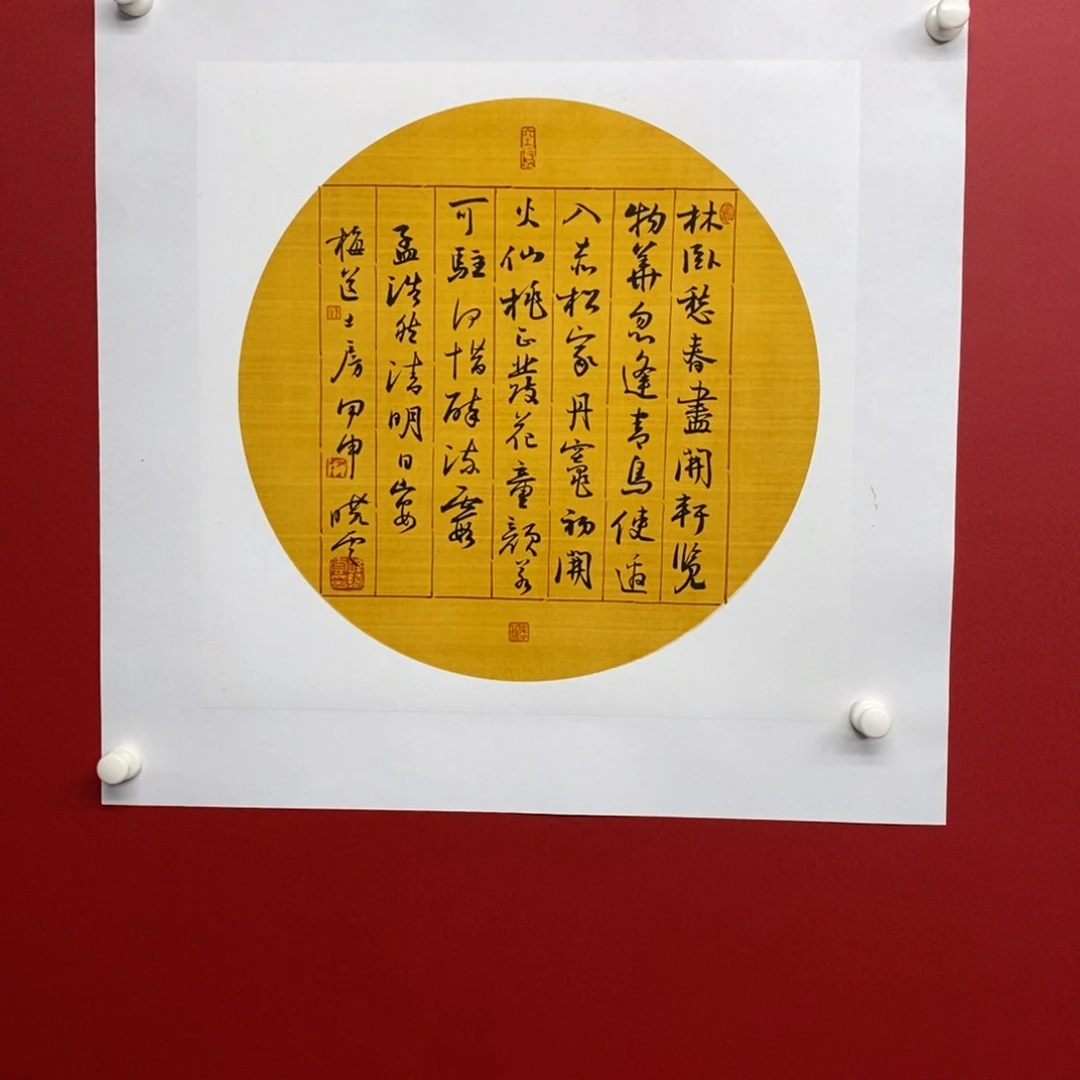 林臥愁春盡開軒覽
物華忽逢青鳥使邀
入赤松家丹竈初開
火仙桃正發花童顏若
可駐何惜醉流霞
孟浩然清明日宴
梅道士房甲申曉雲